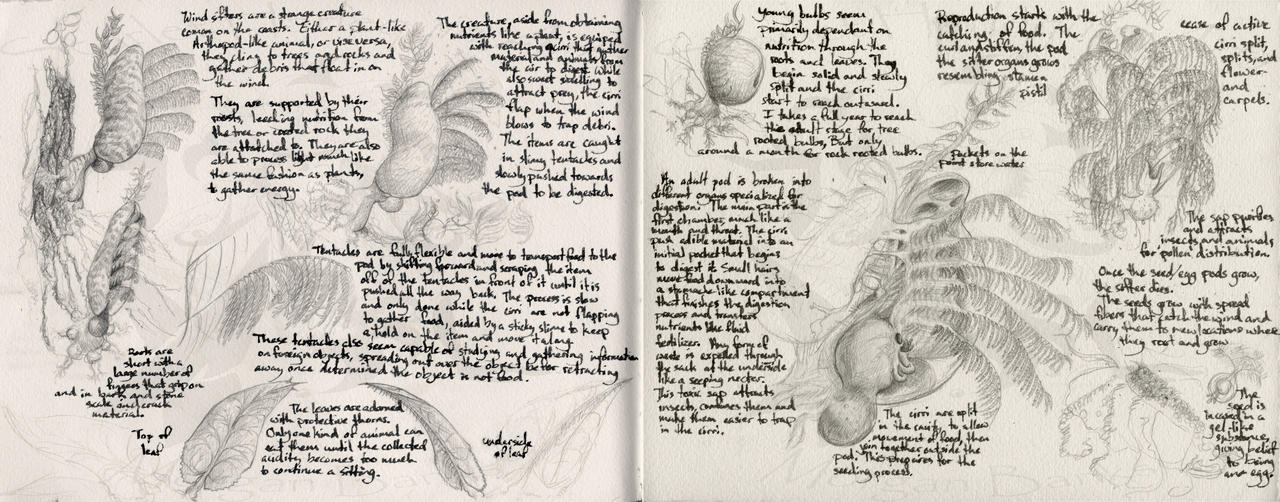 Wind sifters are a strange creature
comon on the coasts. Either a plant-like
Arthropod-like animal, or vise versa,
they cling to trees and rocks and
gather debris that float in on
the wind.
They are supported by their
roots, leeching nutrition from
the tree or rooted rock they
are attatched to. They are also
able to process light much like
the same fashion as plants,
to gather energy.
The creature, aside from obtaining
nutrients like a plant, is equiped
with reaching cirri that gather
material and animals from
the air to digest. While
also sweet smelling to
attract prey, the cirri
flap when the wind
blows to trap debri.
The items are caught
in slimy tentacles and
slowly pushed towards
the pod to be digested.
Tentacles are fully flexible and move to transport food to the
pod by shifting forward and scraping the item
off of the tentacles in front of it until it is
pushed all the way back. The process is slow
and only done while the cirri are not flapping
to gather food, aided by a sticky slime to keep
a hold on the item and move it along
These tentacles also seem capable of studying and gathering information
on foreign objects, spreading out over the object befor retracting
away once determined the object is not food.
Roots are
short with a
large number of
fingers that grip on
and in bark and stone
scale and crack
material.
Top of
leaf
The leaves are adorned
with protective thorns.
Only one kind of animal can
eat them until the collected
acidity becomes too much
to continue a sitting.
underside
of leaf
Young bulbs seem
primarily dependant on
nutrition through the
roots and leaves. They
begin solid and slowly
split and the cirri
start to reach outward.
I takes a full year to reach
the adult stage for tree
rooted bulbs, But only
around a month for rock rooted bulbs.
An adult pod is broken into
different organs specialized for
digestion. The main part is the
first chamber, much like a
mouth and throat. The cirri
push edible material into an
initial pocket that begins
to digest it. Small hairs
move food downward into
a stomache-like compartment
that finishes the digestion
process and transfers
nutrients like fluid
fertilizer. Any form of
waste is expelled through
the sack at the underside
like a seeping nectar.
This toxic sap attracts
insects, confuses them and
make them easier to trap
in the cirri.
Reproduction starts with the
catching of food. The
curl and stiffens the pod
the sifter organs grows
resembling stamen
pistil
cease of active
cirri split,
splits, and
flower-
and
carpels.
Pockets on the
front store water
The sap purifies
and attracts
insects and animals
for pollen distribution.
Once the seed/egg pods grow,
the sifter dies.
The seeds grow with spread
fibers that catch the wind and
carry them to new locations where
they root and grow
The cirri are split
in the cavity, to allow
movement of food, then
join together outside the
pod. This prepares for the
seeding process.
The
seed is
incased in a
gel-like
substance,
giving belief
to being
an egg.